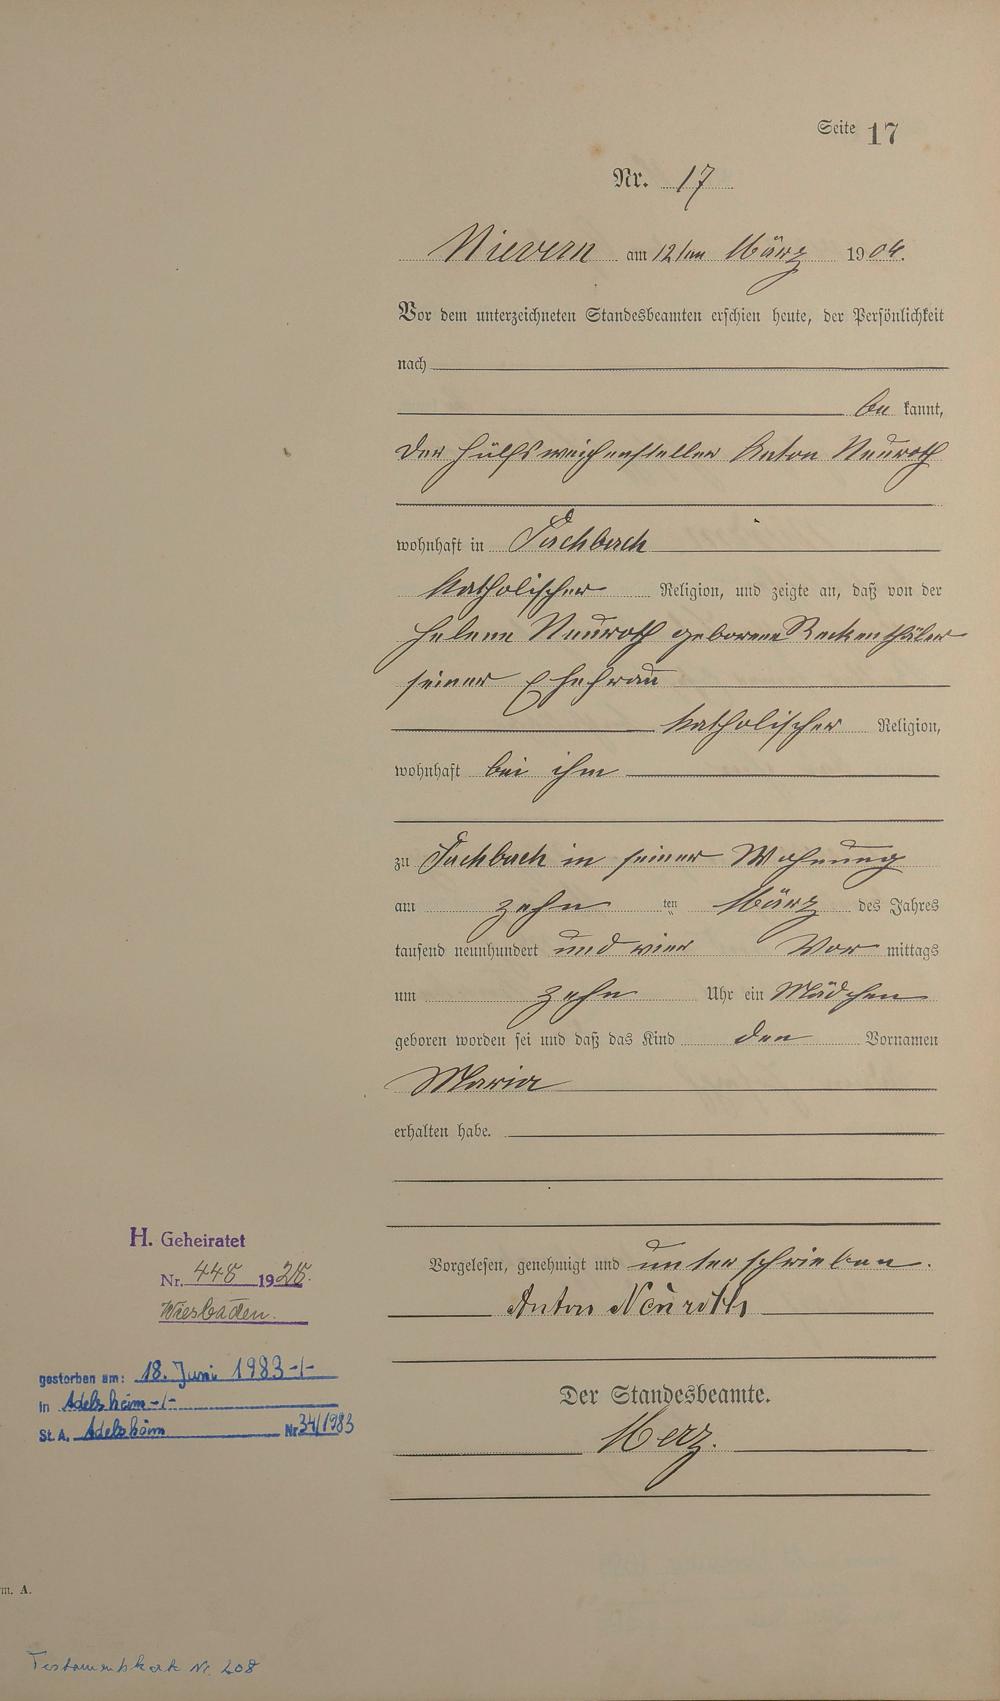 Seite 17
Nr. 17
Nievern am 12ten März 1904.
Vor dem unterzeichneten Standesbeamten erschien heute, der Persönlichkeit
nach
be kannt,
der Hülfsweichensteller Anton Neuroth
wohnhaft in Fachbach
katholischer Religion, und zeigte an, daß von der
Helene Neuroth geborene Reckenthäler
seiner Ehefrau
katholischer Religion,
wohnhaft bei ihm
zu Fachbach in seiner Wohnung
am zehn ten März des Jahres
tausend neunhundert und vier Vor mittags
um zehn Uhr ein Mädchen
geboren worden sei und daß das Kind den Vornamen
Maria
erhalten habe.
Vorgelesen, genehmigt und unterschrieben.
Anton Neuroth
Der Standesbeamte.
Merz.
H. Geheiratet
Nr. 1928.
Wiesbaden.
gestorben am: 18. Juni 1983-/-
in Adelsheim -/-
St. A. Adelsheim Nr 34/1983
m. A.
Testamentskarte Nr. 208